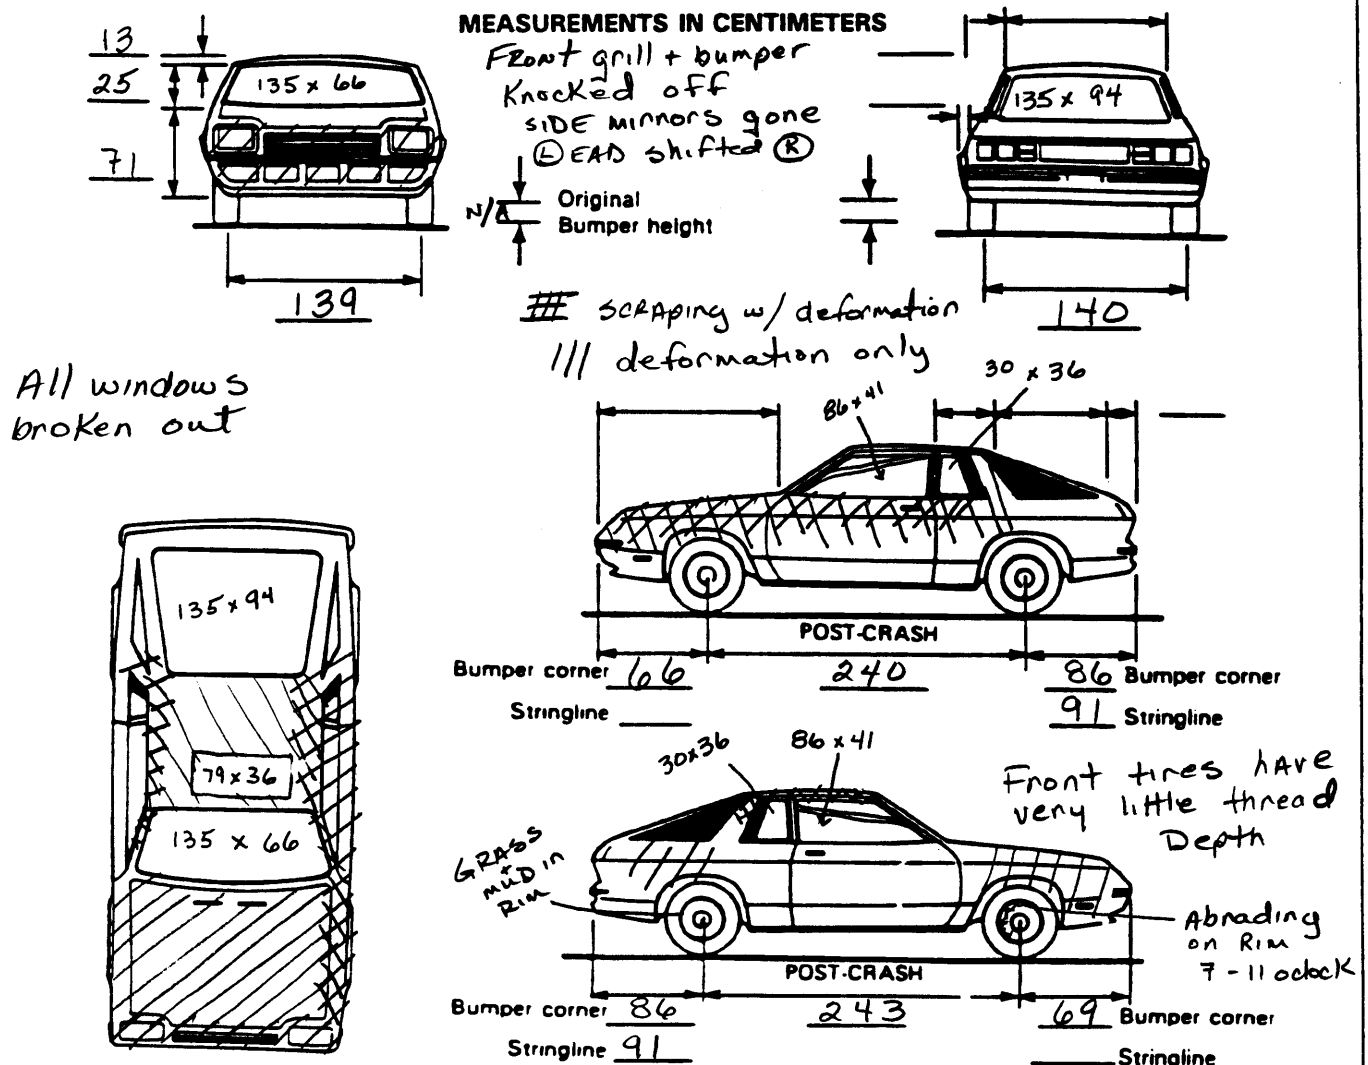 MEASUREMENTS IN CENTIMETERS
Front grill + bumper
Knocked off
SIDE mirrors gone
Ⓛ EAD shifted Ⓡ
13
25
71
135 x 66
139
N/A
Original
Bumper height
135 x 94
140
# scraping w/ deformation
/// deformation only
All windows
broken out
86 x 41
30 x 36
POST-CRASH
Bumper corner 66
240
86 Bumper corner
Stringline
91 Stringline
135 x 94
79 x 36
135 x 66
30x36
86 x 41
Front tires have
very little thread
Depth
GRASS
+
MUD in
RIM
Abrading
on Rim
7 - 11 oclock
POST-CRASH
Bumper corner 86
243
69 Bumper corner
Stringline 91
Stringline